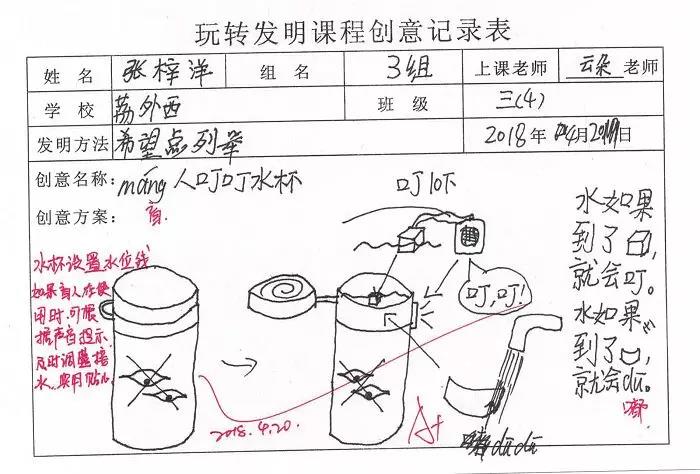 玩转发明课程创意记录表
姓 名 张梓洋 组 名 3组 上课老师 云朵老师
学 校 荔外西 班 级 三(4)
发明方法 希望点列举 2018年 4月20日
创意名称: máng人叮叮水杯
盲.
创意方案:
叮咚
叮,叮!
水如果
到了
就会叮。
水如果
到了
就会dū。
嘟
水杯设置水位线
如果盲人在使
用时.可根
据声音提示
及时调整接
水.实用贴心
嘟dūdū
2018.4.20.
A+